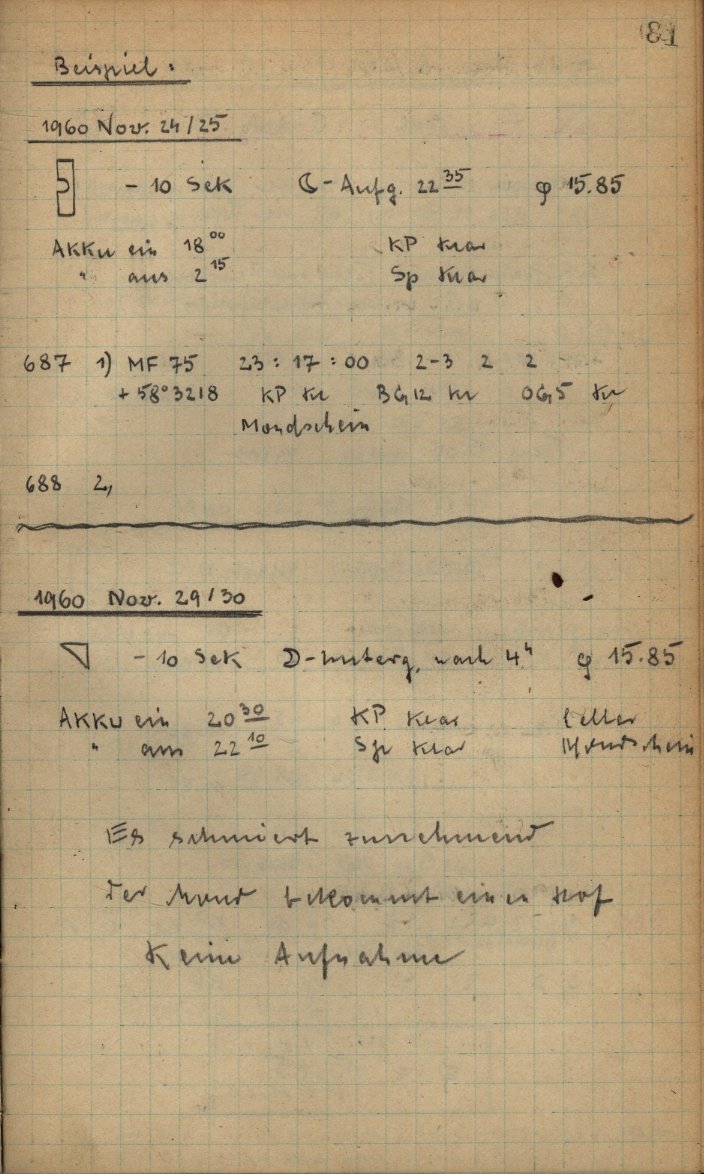 81
Beispiel:
1960 Nov. 24/25
- 10 Sek ☾-Aufg. 22 35 φ 15.85
Akku ein 18 00 KP klar
" aus 2 15 Sp klar
687 1) MF 75 23:17:00 2-3 2 2
+58°3218 KP kl BG12 kl OG5 kl
Mondschein
688 2,
1960 Nov. 29/30
- 10 Sek D-Unterg. nach 4h φ 15.85
Akku ein 20 30 KP klar heller
" aus 22 10 Sp klar Mondschein
Es schmiert zunehmend
der Mond bekommt einen Hof
Keine Aufnahme